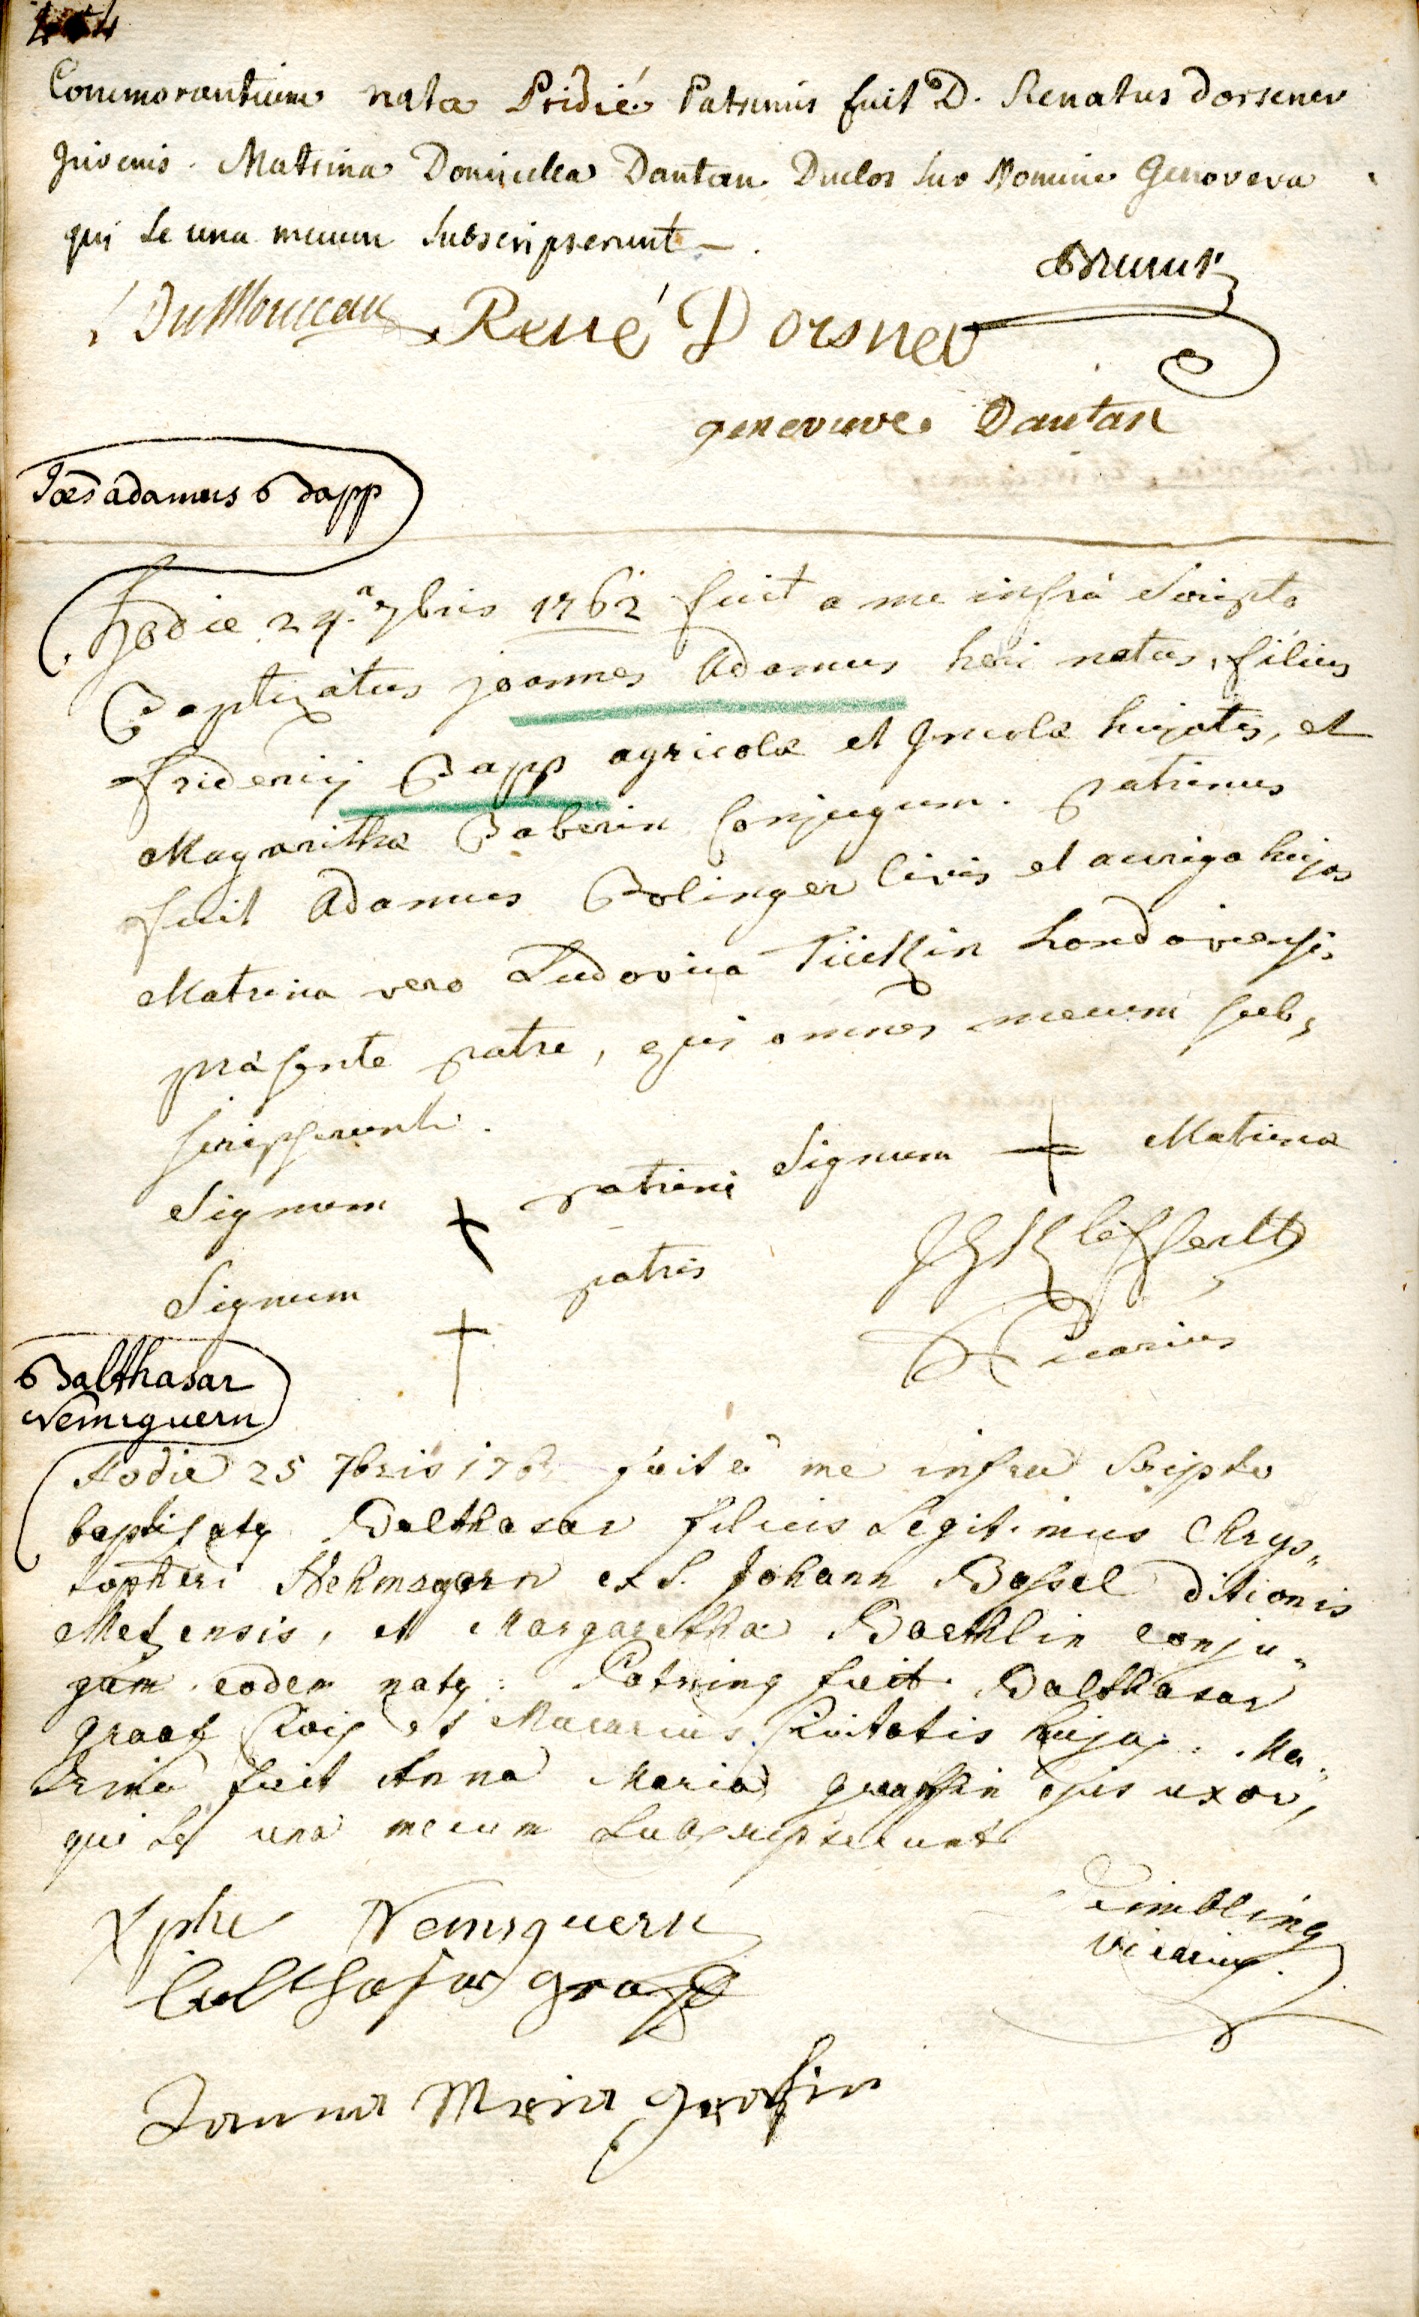 Commorantium nata Pridié Patrinus fuit D. Renatus Dorsener
Juvenis. Matrina Domicella Dantan Duclos suo Nomine Genoveva
qui se una mecum subscripserunt
Dumouceau René Dorsner
genevieve Dantan
Joēs adamus Bapp
hodie 24.a 7bris 1762 fuit a me infrà scripto
Baptizatus joannes Adamus heri natus, filius
friderici Bapp agricolæ et Jncolæ hujatis, et
Magarithæ Baberin Conjugum. patrinus
fuit Adamus Bolinger Civis et auriga hujas
Matrina vero Ludovica landaviensis
præsente patre, qui omnes mecum sub,
scripserunt.
Signum + patrini Signum + Matrinæ
Signum + patris
Vicarius
Balthasar
Nemsguern
Hodie 25 7bris 176 fuit à me infra scripto
baptisatq Balthasar filius Legitimus Chrys„
topheri Nehmsgern ex S. Johann Bassel ditionis
Metzensis, et Margaretha Baechlin conju„
gum eodem natq: Patrinq fuit Balthasar
graaf Civis et Civitatis hujas: Ma„
trina fuit Anna Maria graaffin ejus uxor,
qui se una mecum subscripserunt
Xphe Nemsguern
Vicarius
balthasar graff
Janna Maria grafin